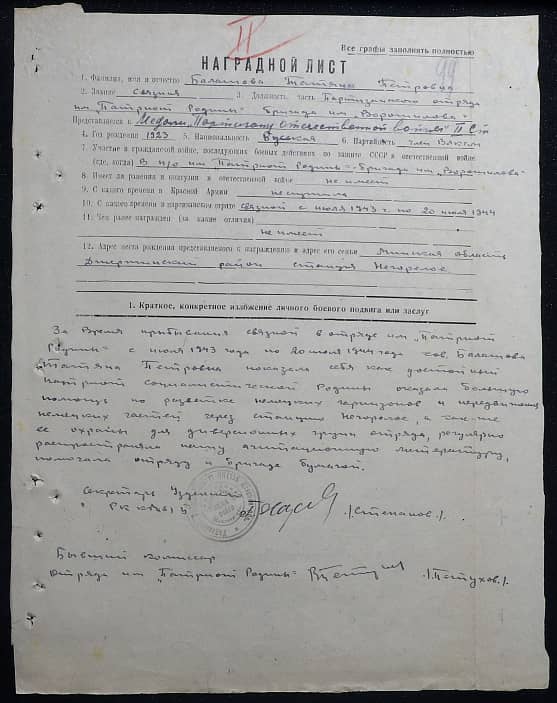 II
Все графы заполнять полностью
99
НАГРАДНОЙ ЛИСТ
1. Фамилия, имя и отчество Балашова Татьяна Петровна
2. Звание связная 3. Должность, часть Партизанского отряда
им. "Патриот Родины" бригада им. "Ворошилова"
Представляется к Медали "Партизану Отечественной войны" II ст
4. Год рождения 1923 5. Национальность Русская 6. Партийность член ВЛКСМ
7. Участие в гражданской войне, последующих боевых действиях по защите СССР и отечественной войне
(где, когда) В п/о им "Патриот Родины" - бригады им "Ворошилова"
8. Имеет ли ранения и контузии в отечественной войне не имеет
9. С какого времени в Красной Армии не служила
10. С какого времени в партизанском отряде связной с июля 1943 г. по 20 июля 1944
11. Чем ранее награжден (за какие отличия)
не имеет
12. Адрес места рождения представляемого к награждению и адрес его семьи Минская область
Дзержинский район станция Негорелое
1. Краткое, конкретное изложение личного боевого подвига или заслуг
За время прибывания связной в отряде им. "Патриот
Родины" с июля 1943 года по 20 июля 1944 года тов. Балашова
Татьяна Петровна показала себя как достойный
патриот социалистической Родины оказала большую
помощь по разведке немецких гарнизонов и передвижения
немецких частей через станцию Негорелое, а так-же
ее охраны для диверсионных групп отряда, регулярно
распространяла нашу агитационную литературу,
помогала отряду и бригаде бумагой.
Секретарь Узденского
РК КП(б)Б /Степанов./
Бывший комиссар
отряда им. "Патриот Родины" /Петухов./